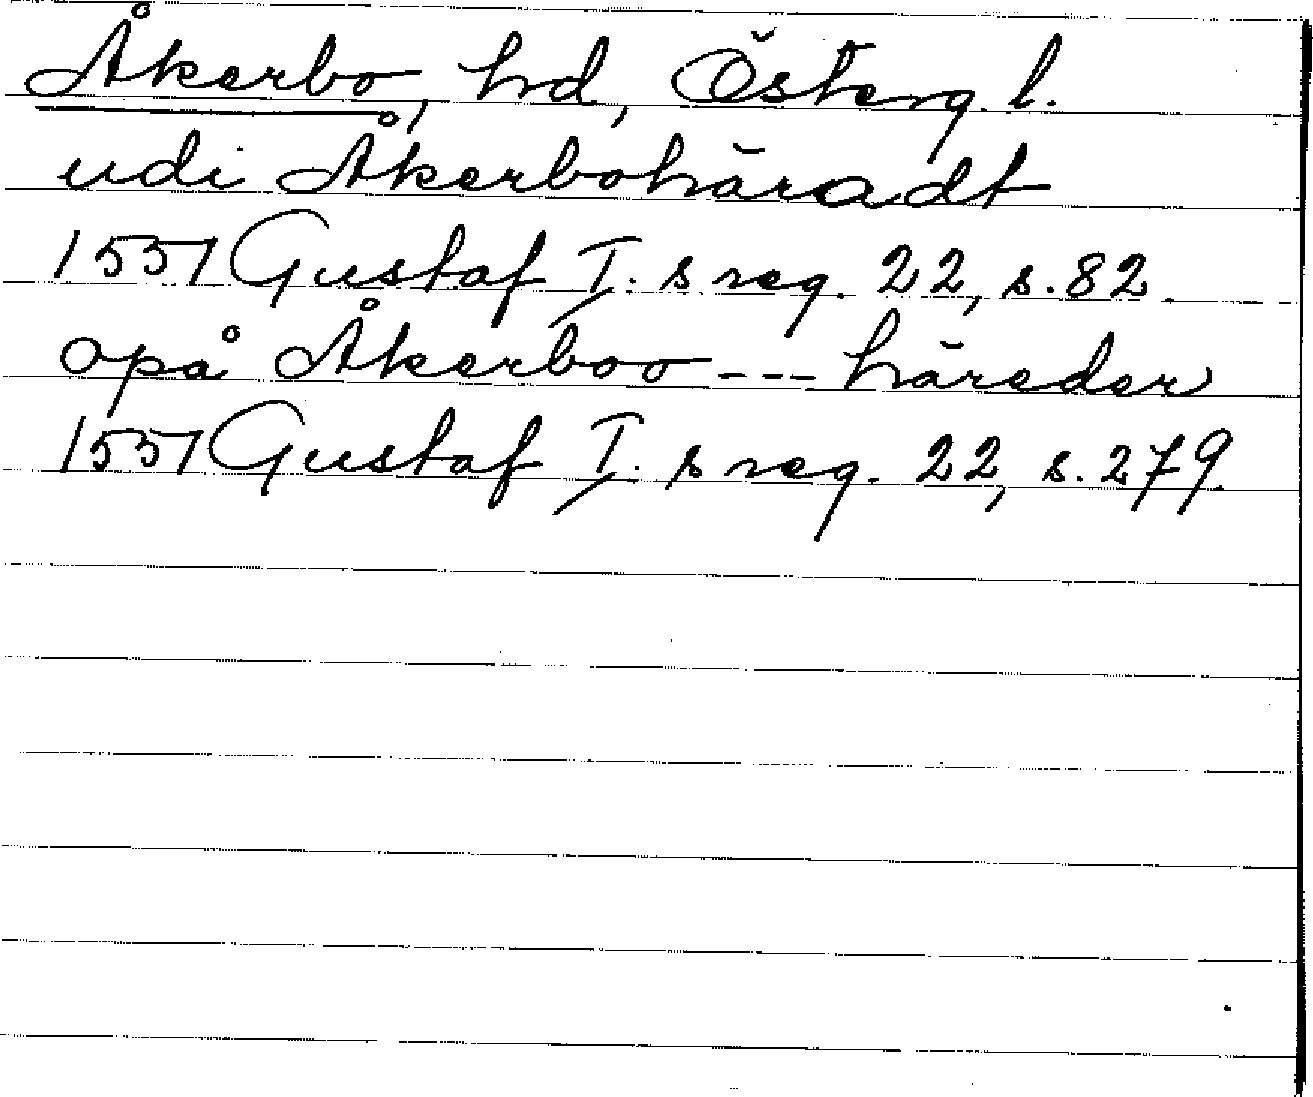 Åkerbo, hd, Österg. l.
udi Åkerbohäradt
1551 Gustaf I:s reg. 22, s. 82.
opå Åkerboo --- häreder
1551 Gustaf I:s reg. 22, s. 279.